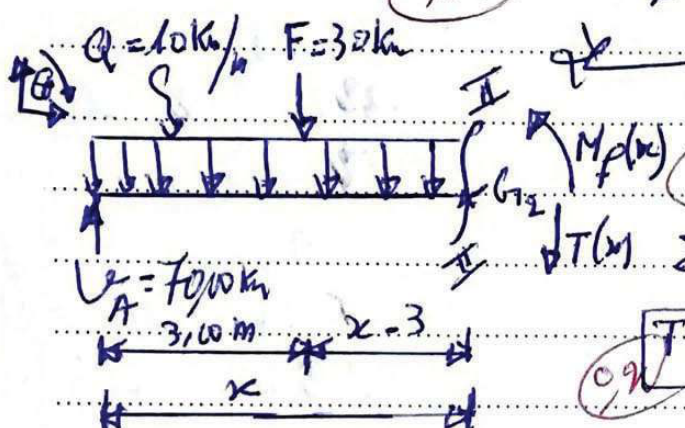 Q = 10 Kn/m F = 30 Kn
⊕
II
Mf(x)
G2
T(x)
II
VA = 70,00 Kn
3,00 m x - 3
T
x